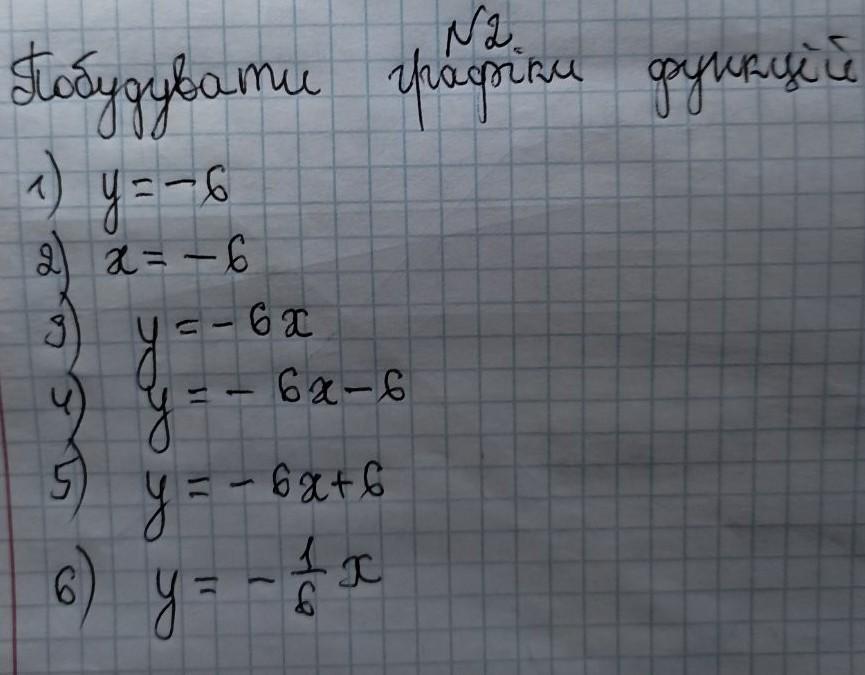 N2
Побудувати графіки функцій
1) y = - 6
2) x = - 6
3) y = - 6x
4) y = - 6x - 6
5) y = - 6x + 6
6) y = - 1/6 x